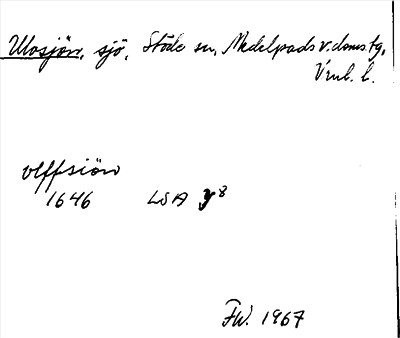 Ulvsjön, sjö, Stöde sn, Medelpads v. doms. tg,
Vrnl. l.
vlffsiön
1646 LSA y8
FW. 1967